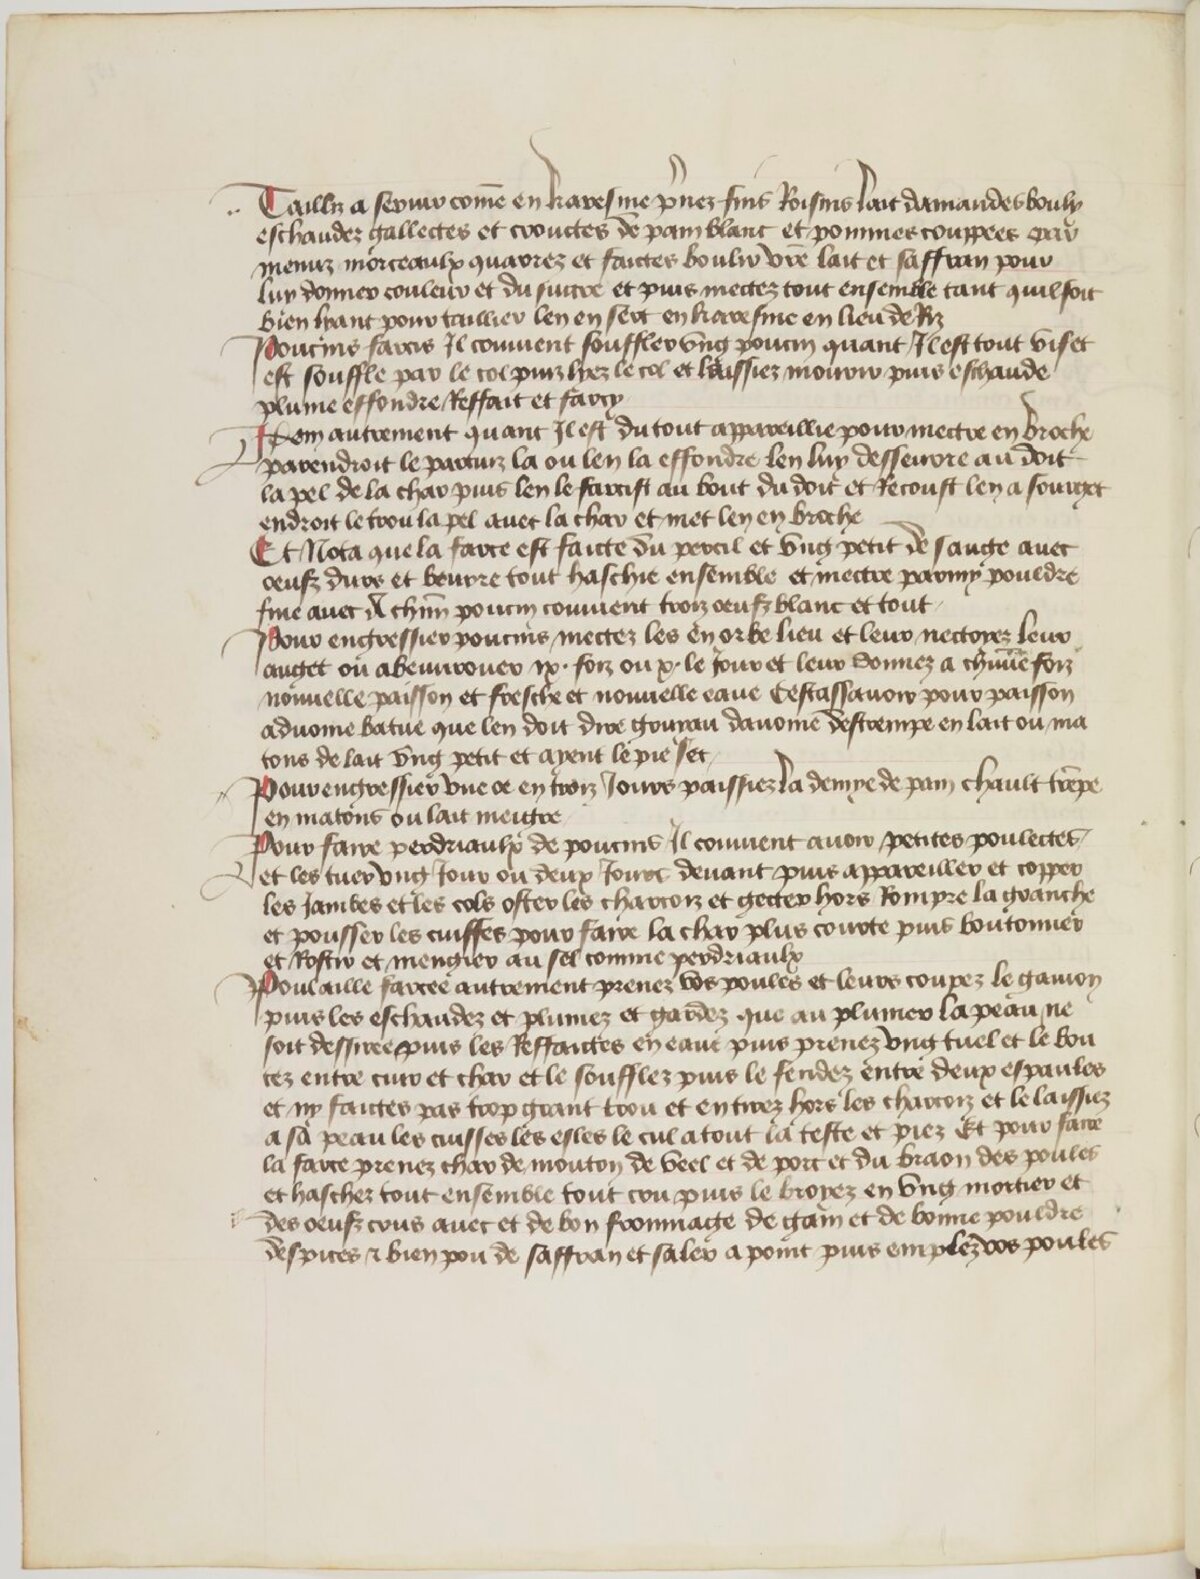 Taillez a servir com̄e en karesme p̄nez fins Roisins lait damandes bouly
eschaudez gallectes et croutes de pain blanc et pommes couppees par
menuz morceaulx quarrez et faictes boulir vr̄e lait et saffran pour
luy donner couleur et du succre et puis mectez tout ensemble tant quil soit
bien liant pour taillier len en sert en karesme en lieu de Riz
Poucins farcis Il convient souffler ung poucin quant Il est tout vif et
est souffle par le col puiz lyez le col et laissiez mourir puis eschaude
plume effondre Reffait et farcy
Item autrement quant Il est du tout appareillie pour mectre en broche
par endroit le partuiz la ou len la effondre len luy dessevre au doit
la pel de la char puis len le farcist au bout du doit et Recoust len a sourget
endroit le trou la pel avec la char et met len en broche
Et Nota que la farce est faicte du percil et ung petit de sauge avec
oeufz durs et beurre tout haschie ensemble et mectre parmy pouldre
fine avec A chūn poucin convient troiz oeufz blanc et tout
Pour engressier poucins mectez les en orbe lieu et leur nectoyez leur
auget ou abeuvrouer ix. foiz ou x. le Jour et leur donnez a chūne foiz
nouvelle paisson et fresche et nouvelle eaue Cest assavoir pour paisson
advoine batue que len doit dire gruyau davoine destrempe en lait ou ma
tons de lait ung petit et ayent le pie sec
Pour engressier une oe en troiz Jours paissiez la de mye de pain chault trēpe
en matons ou lait meigre
Pour faire perdriaulx de poucins Il convient avoir petites poulectes
et les tuer ung Jour ou deux Jours devant puis appareiller et copper
les Jambes et les cols oster les charcoiz et gecter hors Rompre la granche
et pousser les cuisses pour faire la char plus courte puis boutonner
et Rostir et mengier au sel comme perdriaulx
Poulaille farcee autrement prenez vos poules et leurs coupez le gavion
puis les eschaudez et plumez et gardez que au plumer la peau ne
soit dessiree puis les Reffaictes en eaue puis prenez ung tuel et le bou
tez entre cuir et char et le soufflez puis le fendez entre deux espaules
et ny faictes pas trop grant trou et en tirez hors les charcoiz et le laissiez
a sa peau les cuisses les esles le cul atout la teste et piez Et pour faire
la farce prenez char de mouton de veel et de porc et du braon des poules
et haschez tout ensemble tout cru puis le broyez en ung mortier et
des oeufz crus avec et de bon frommage de gain et de bonne pouldre
despices & bien pou de saffran et saler a point puis emplez vos poules